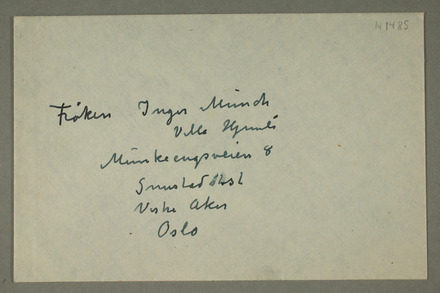 N 1485
Frøken Inger Munch
Villa
Munkeengsveien 8
Vestre Aker
Oslo